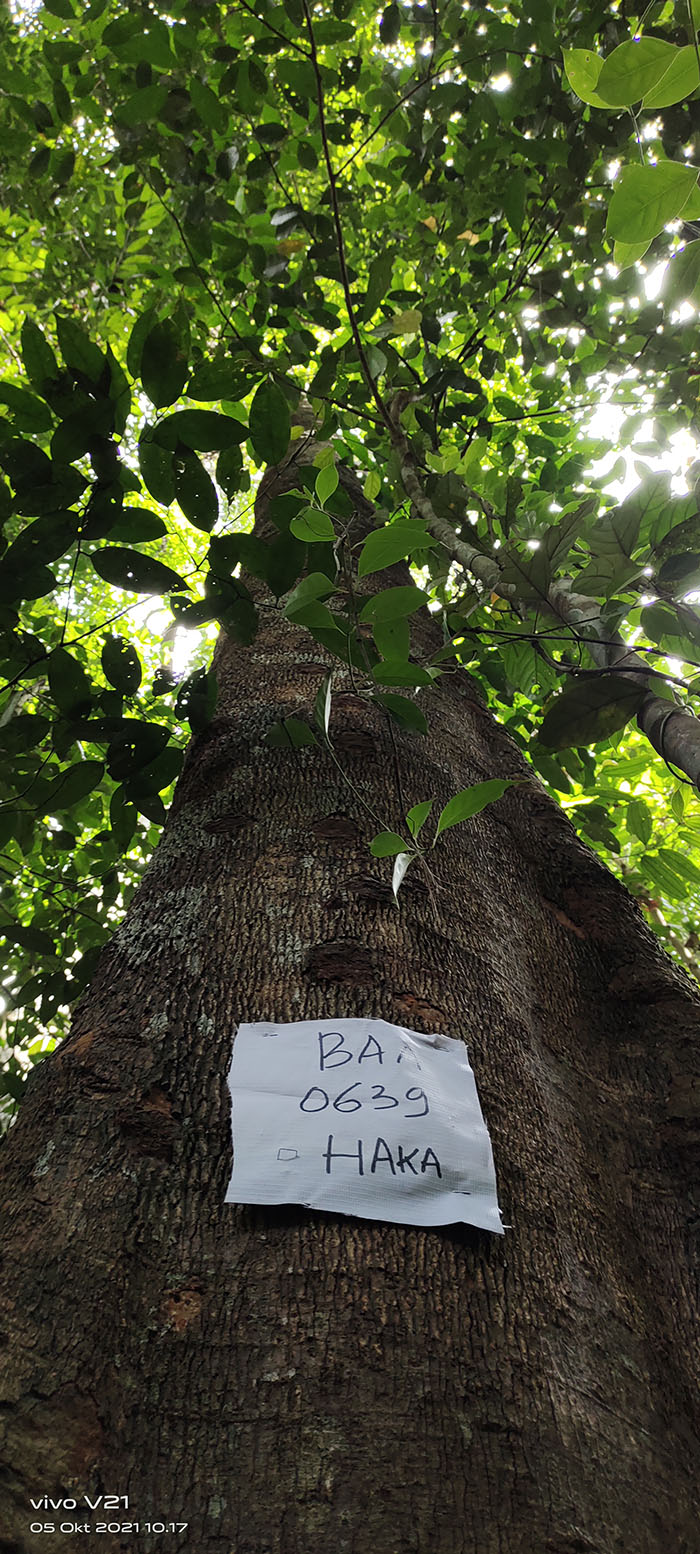 0639
HAKA
vivo V21
05 Okt 2021 10.17